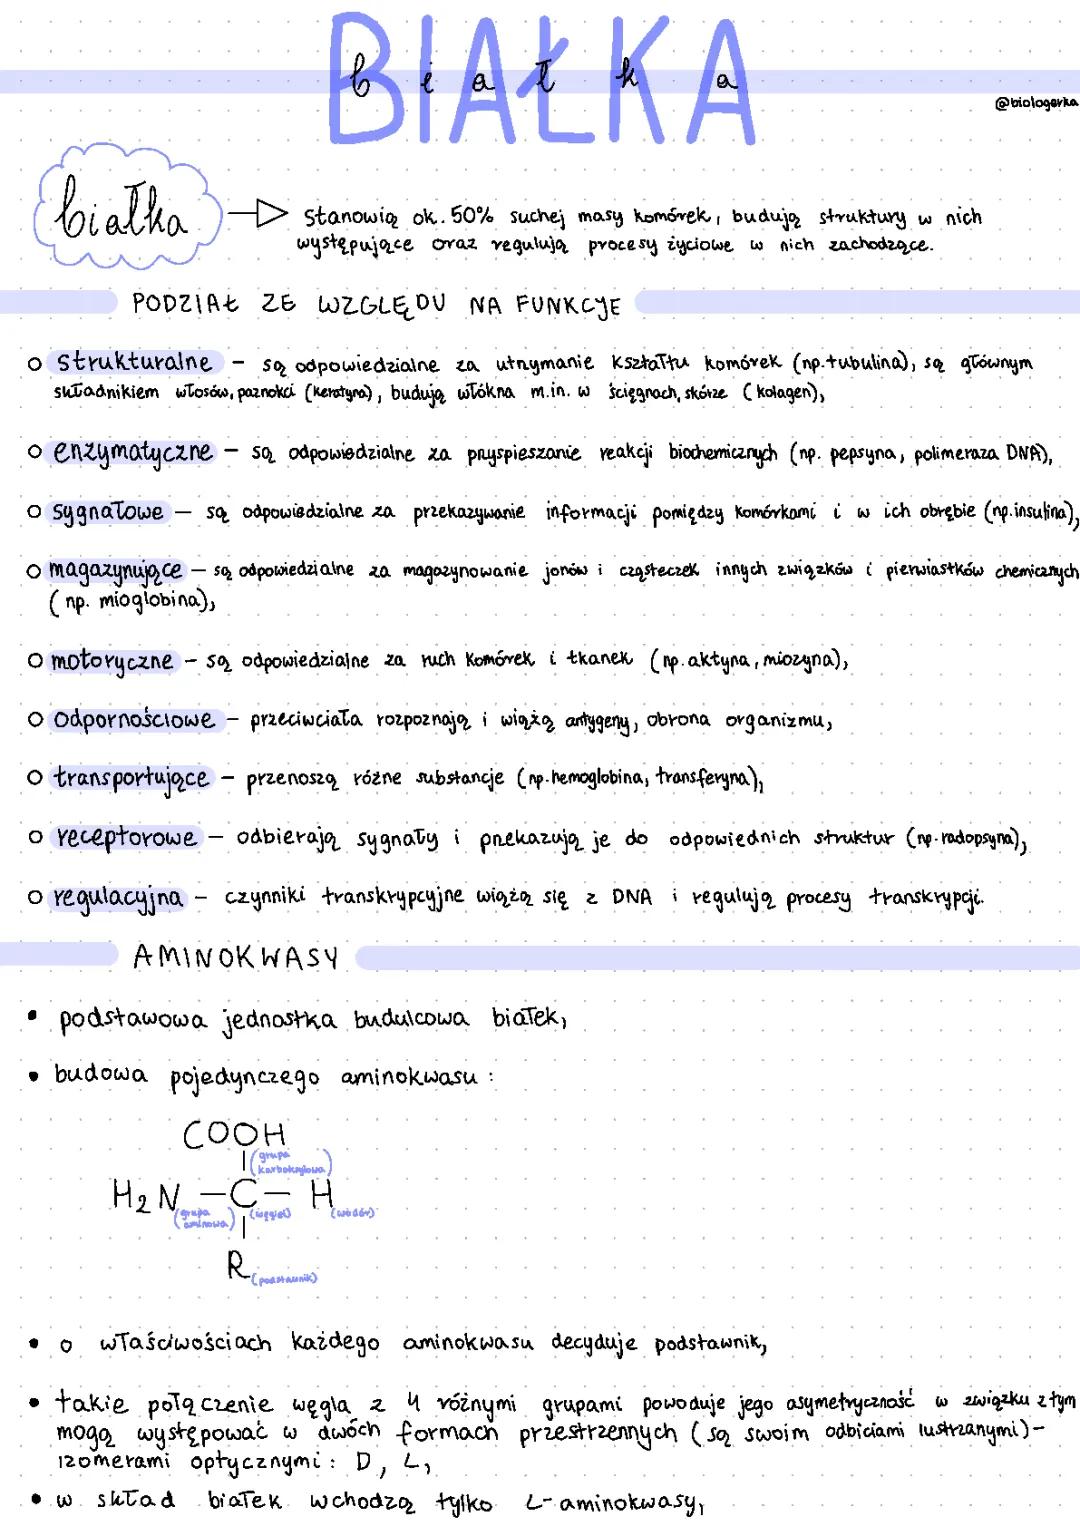 BIAŁKA
białka
@biologerka
białka
stanowią ok. 50% suchej masy komórek, budują struktury w nich
występujące oraz regulują procesy życiowe w nich zachodzące.
PODZIAŁ ZE WZGLĘDU NA FUNKCJE
strukturalne – są odpowiedzialne za utrzymanie kształtu komórek (np. tubulina), są głównym
składnikiem włosów, paznokci (keratyna), budują włókna m.in. w ścięgnach, skórze (kolagen),
enzymatyczne – są odpowiedzialne za przyspieszanie reakcji biochemicznych (np. pepsyna, polimeraza DNA),
sygnałowe – są odpowiedzialne za przekazywanie informacji pomiędzy komórkami i w ich obrębie (np. insulina),
magazynujące – są odpowiedzialne za magazynowanie jonów i cząsteczek innych związków i pierwiastków chemicznych
(np. mioglobina),
motoryczne – są odpowiedzialne za ruch komórek i tkanek (np. aktyna, miozyna),
odpornościowe – przeciwciała rozpoznają i wiążą antygeny, obrona organizmu,
transportujące – przenoszą różne substancje (np. hemoglobina, transferyna),
receptorowe – odbierają sygnały i przekazują je do odpowiednich struktur (np. radopsyna),
regulacyjna – czynniki transkrypcyjne wiążą się z DNA i regulują procesy transkrypcji.
AMINOKWASY
• podstawowa jednostka budulcowa białek,
• budowa pojedynczego aminokwasu:
COOH
(grupa
karboksylowa)
H₂N – C – H
(grupa
aminowa) (węgiel) (wodór)
R (podstawnik)
• o właściwościach każdego aminokwasu decyduje podstawnik,
• takie połączenie węgla z 4 różnymi grupami powoduje jego asymetryczność w związku z tym
mogą występować w dwóch formach przestrzennych (są swoim odbiciami lustrzanymi) –
izomerami optycznymi: D, L,
• w skład białek wchodzą tylko L-aminokwasy,